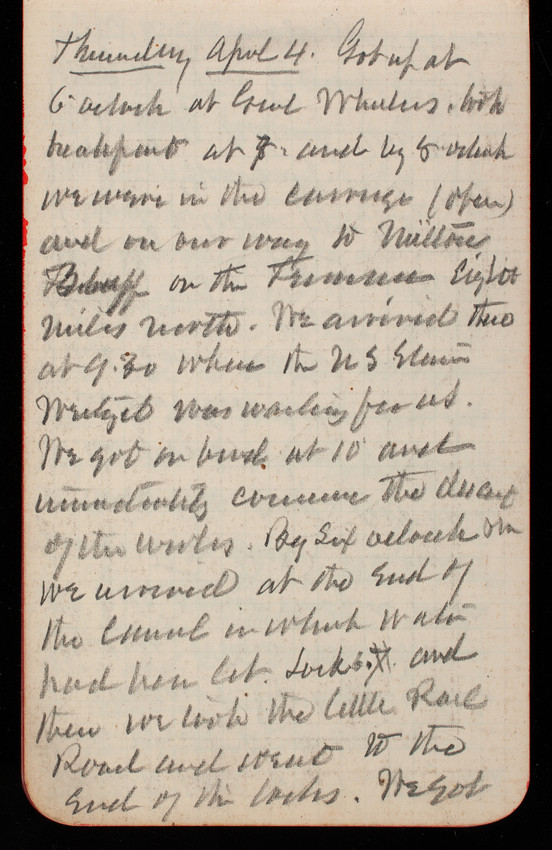 Thursday April 4. Got up at
6 oclock at Genl Wheelers. took
breakfast at 7. and by 8 oclock
we were in the carriage (open)
and on our way to Miltons
Bluff on the Tennessee Eight
miles north. We arrived there
at 9.30 where the U S Steamer
Weitzel was waiting for us.
We got on bord at 10 and
immediately commence the descent
of the works. By Six oclock
we arrived at the End of
the Canal in which water
had been let. Locks. and
then we took the little Rail
Road and went to the
End of the locks. We got